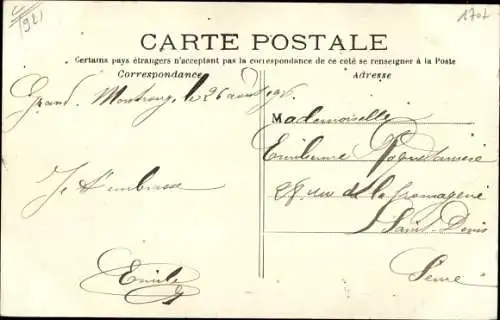 921
1707
CARTE POSTALE
Certains pays étrangers n'acceptant pas la correspondance de ce côté se renseigner à la Poste
Correspondance
Adresse
Grand Montrouge, le 26 août
Je t'embrasse
Emile
Mademoiselle
Emilienne
rue de la fromagerie
Saint-Denis
Seine